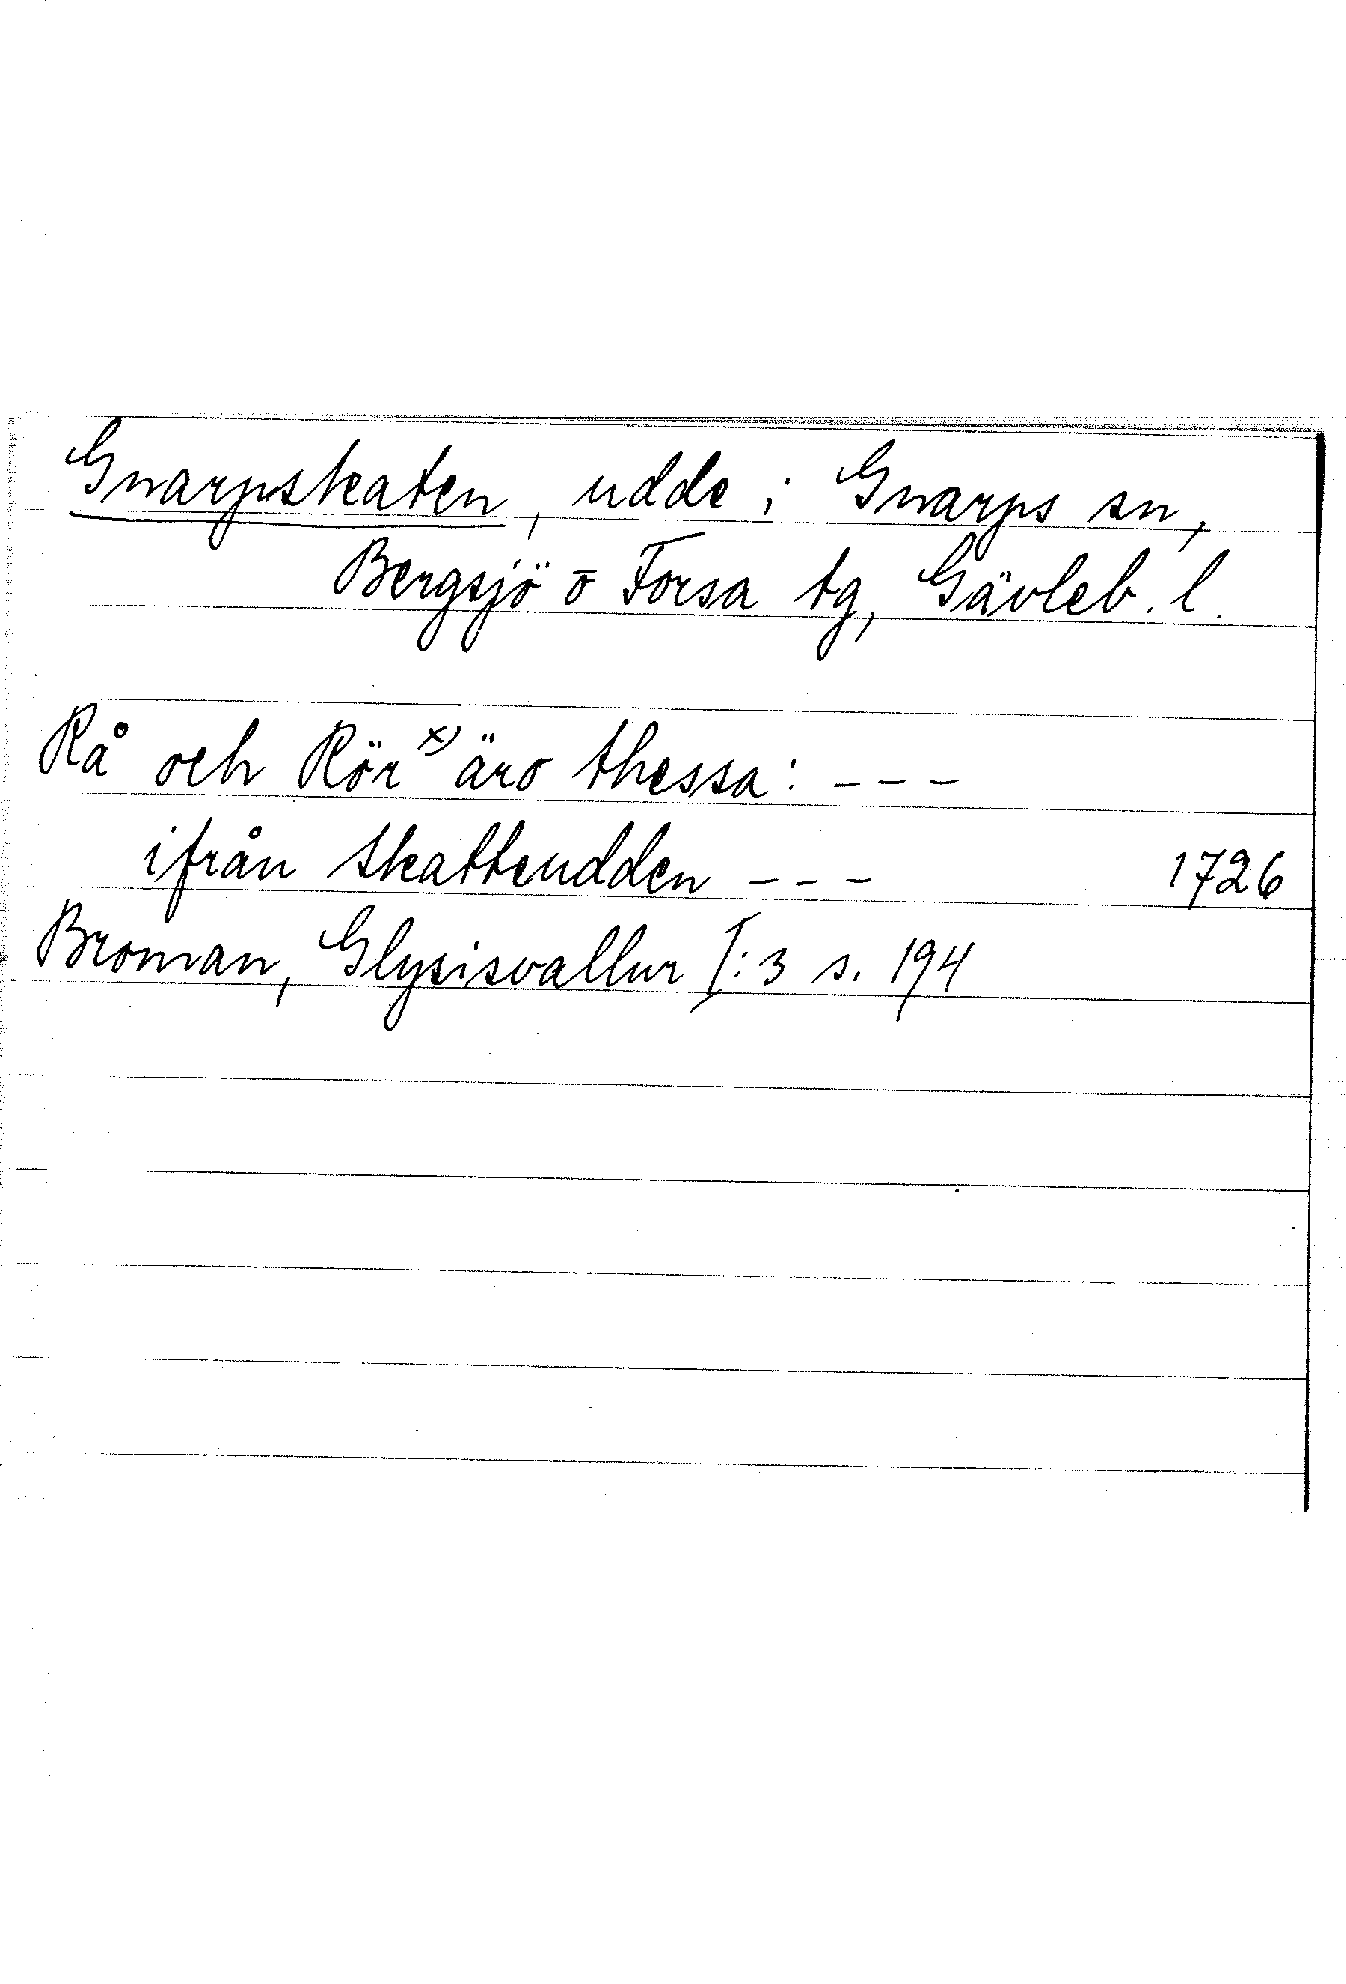 Gnarpskaten, udde i Gnarps sn,
Bergsjö o Forsa tg, Gävleb. l.
Rå och Rör x) äro thessa: - - -
ifrån Skatteudden - - - 1726
Broman, Glysisvallur I:3 s. 194